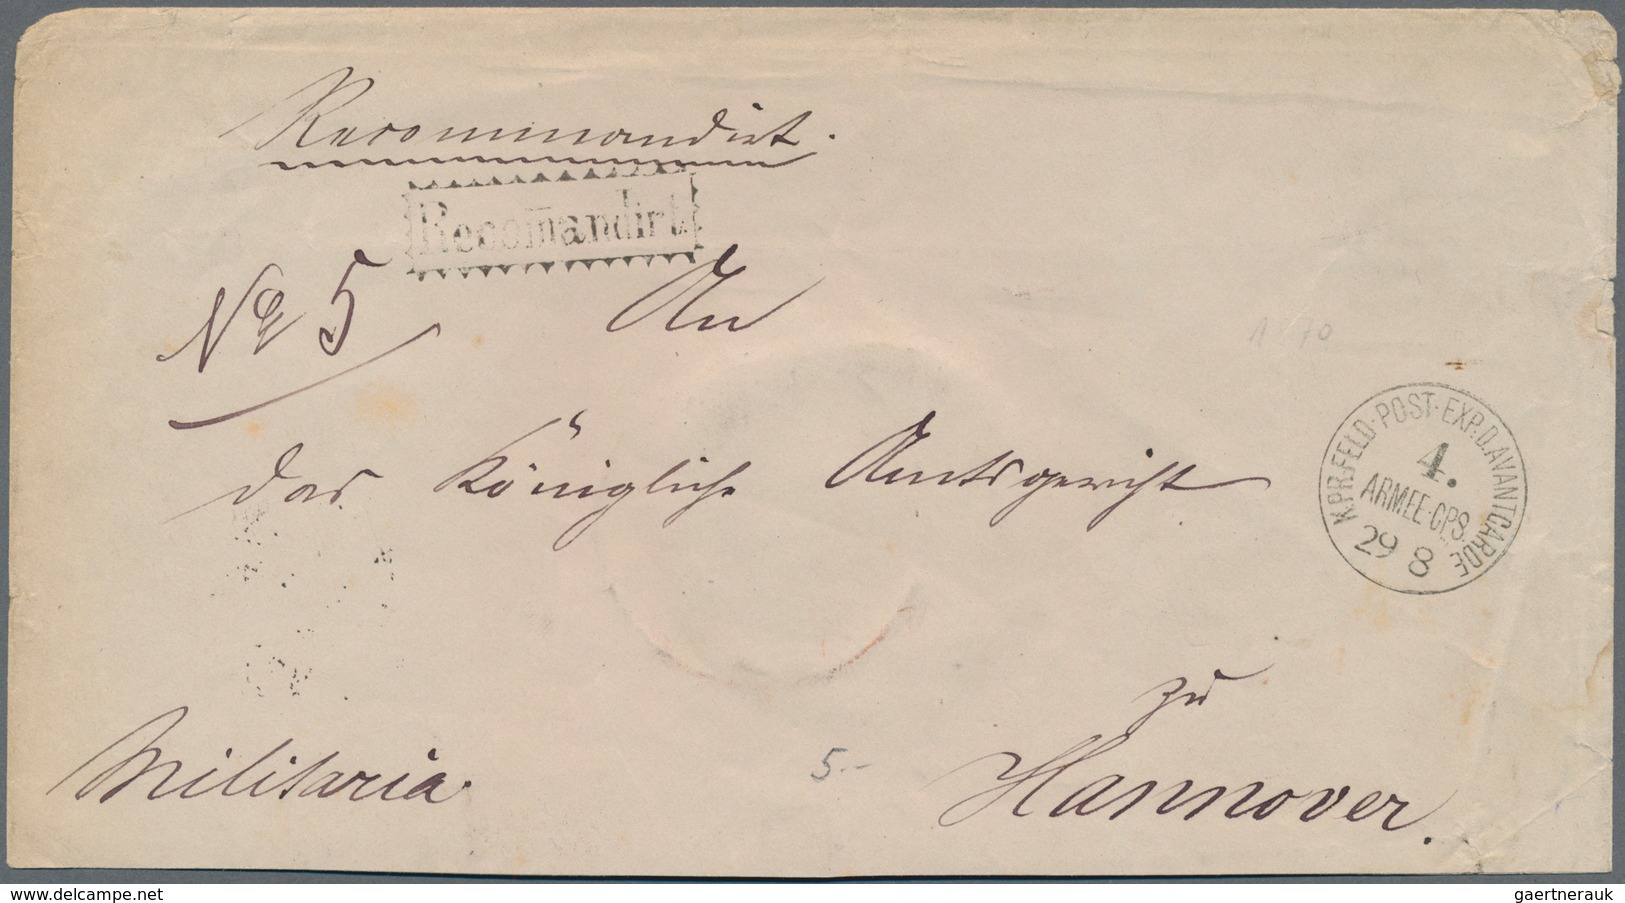 Recommandirt.
Recom̄andirt
No 5
An
das Königliche Amtsgericht
1870
K.PR.FELD-POST-EXP.D.AVANTGARDE
4.
ARMEE-CPS.
29 8
zu
Hannover.
Militaria.
5.-
www.delcampe.net
gaertnerauk